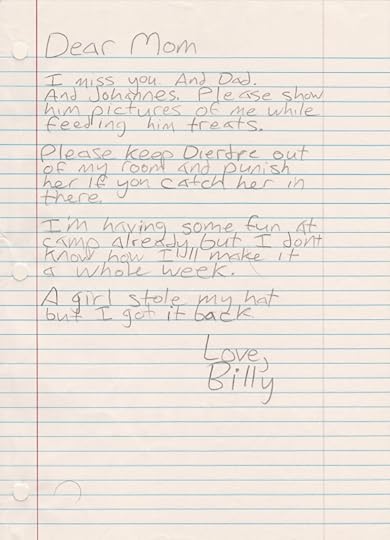 Dear Mom
I miss you. And Dad.
And Johannes. Please show
him pictures of me while
feeding him treats.
Please keep Dierdre out
of my room and punish
her if you catch her in
there.
I'm having some fun at
camp already but I dont
know how I'll make it
a whole week.
A girl stole my hat
but I got it back.
Love,
Billy